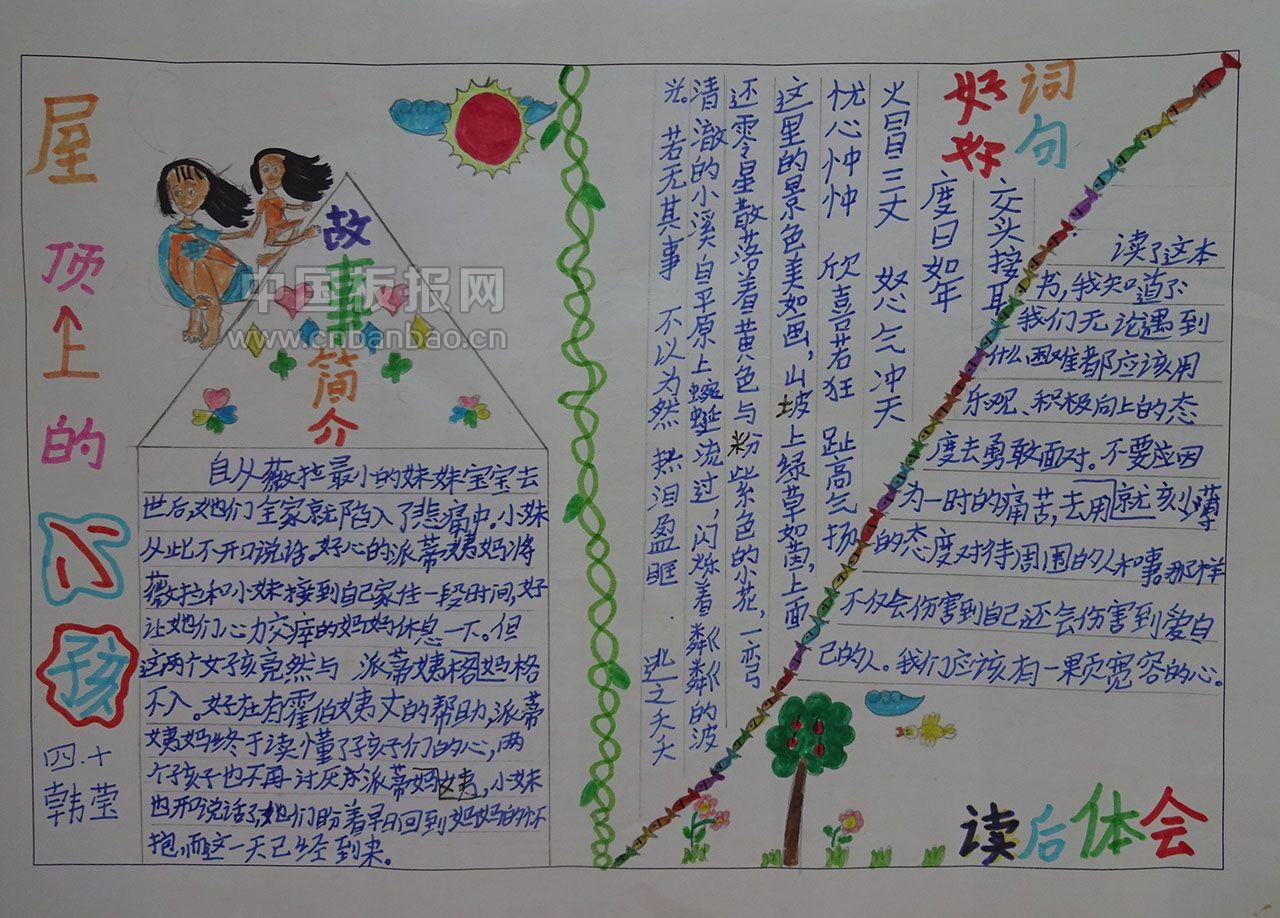 屋顶上的小孩
四.十
韩莹
故事简介
自从薇拉最小的妹妹宝宝去
世后,她们全家就陷入了悲痛中。小妹
从此不开口说话。好心的派蒂姨妈将
薇拉和小妹接到自己家住一段时间,好
让她们心力交瘁的妈妈休息一下。但
这两个女孩竟然与派蒂姨格妈格
不入。好在有霍伯姨丈的帮助,派蒂
姨妈终于读懂了孩子们的心,两
个孩子也不再讨厌派蒂妈姨,小妹
也开口说话了,她们盼着早日回到妈妈的怀
抱,而这一天已经到来。
好词
好句
交头接耳
度日如年
火冒三丈 怒气冲天
忧心忡忡 欣喜若狂 趾高气扬
这里的景色美如画,山坡上绿草如茵,上面
还零星散落着黄色与粉紫色的小花,一弯
清澈的小溪自平原上蜿蜒流过,闪烁着粼粼的波
光。若无其事 不以为然 热泪盈眶 逃之夭夭
读了这本
书,我知道了
我们无论遇到
什么困难都应该用
乐观、积极向上的态
度去勇敢面对。不要应因
为一时的痛苦,去用就刻薄
的态度对待周围的人和事。那样
不仅会伤害到自己还会伤害到爱自
己的人。我们应该有一颗宽容的心。
读后体会
中国板报网
www.cnbanbao.cn